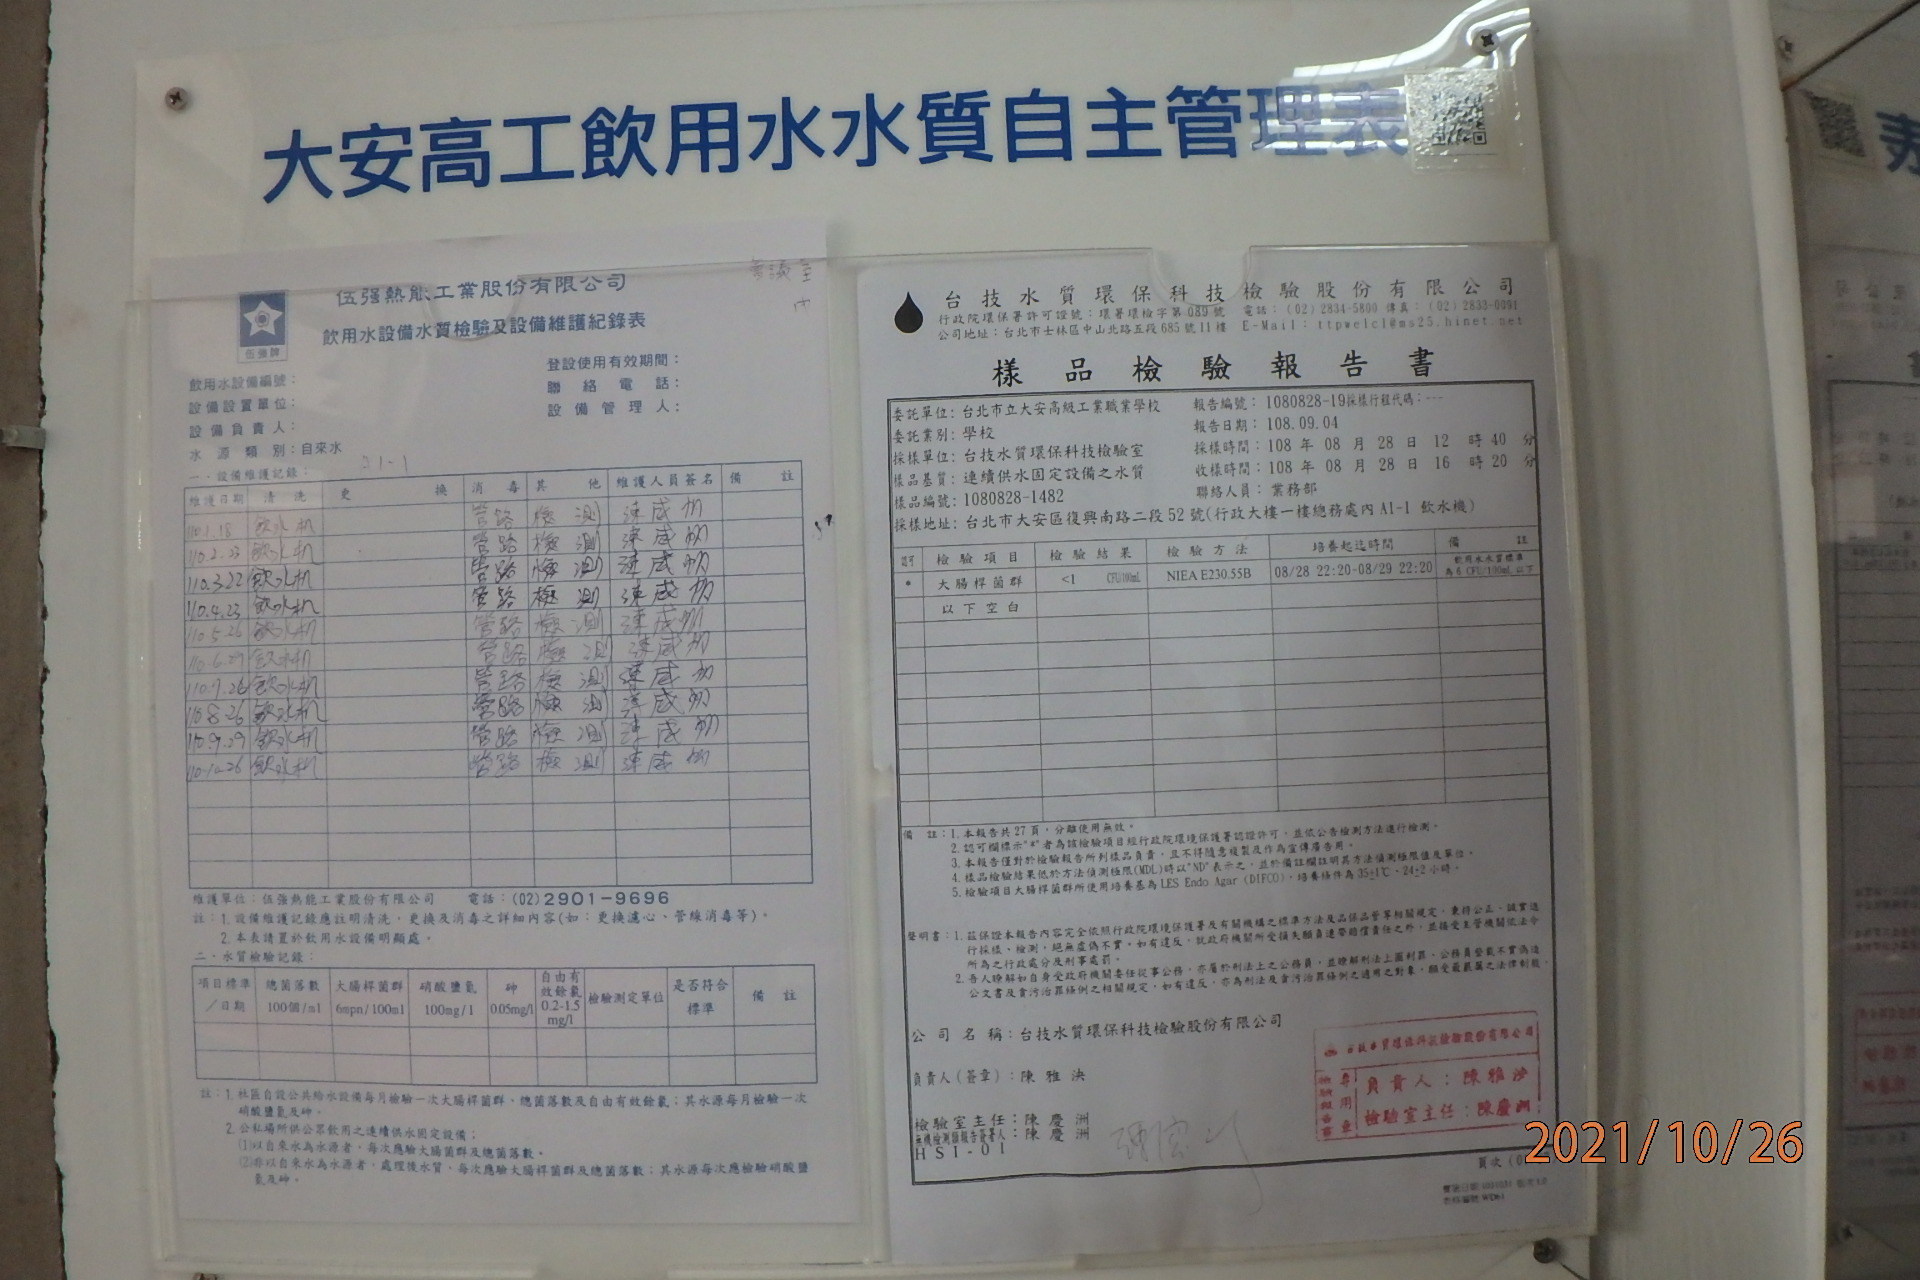 大安高工飲用水水質自主管理表
會議室
內
伍强熱能工業股份有限公司
飲用水設備水質檢驗及設備維護紀錄表
伍強牌
登設使用有效期間：
飲用水設備編號：
聯絡電話：
設備設置單位：
設備管理人：
設備負責人：
水源類別：自來水
一、設備維護記錄：
維護日期 清洗 更換 消毒 其他 維護人員簽名 備註
110.1.18 飲水机 管路 檢測
110.2.23 飲水机 管路 檢測
110.3.22 飲水机 管路 檢測
110.4.23 飲水机 管路 檢測
110.5.26 飲水机 管路 檢測
110.6.29 飲水机 管路 檢測
110.7.26 飲水机 管路 檢測
110.8.26 飲水机 管路 檢測
110.9.29 飲水机 管路 檢測
110.10.26 飲水机 管路 檢測
維護單位：伍強熱能工業股份有限公司 電話：(02)2901-9696
註：1. 設備維護記錄應註明清洗，更換及消毒之詳細內容(如：更換濾心、管線消毒等)。
2. 本表請置於飲用水設備明顯處。
二、水質檢驗記錄：
項目標準／日期 總菌落數 100個/ml 大腸桿菌群 6mpn/100ml 硝酸鹽氮 100mg/l 砷 0.05mg/l 自由有效餘氯 0.2-1.5 mg/l 檢驗測定單位 是否符合標準 備註
註：1. 社區自設公共給水設備每月檢驗一次大腸桿菌群、總菌落數及自由有效餘氯；其水源每月檢驗一次
硝酸鹽氮及砷。
2. 公私場所供公眾飲用之連續供水固定設備；
(1)以自來水為水源者，每次應驗大腸桿菌群及總菌落數。
(2)非以自來水為水源者，處理後水質，每次應驗大腸桿菌群及總菌落數；其水源每次應檢驗硝酸鹽
氮及砷。
台技水質環保科技檢驗股份有限公司
行政院環保署許可證號：環署環檢字第089號 電話：(02)2834-5800 傳真：(02)2833-0091
公司地址：台北市士林區中山北路五段685號11樓 E-Mail: ttpwelcl@ms25.hinet.net
樣品檢驗報告書
委託單位：台北市立大安高級工業職業學校 報告編號：1080828-19 採樣行程代碼：---
委託業別：學校 報告日期：108.09.04
採樣單位：台技水質環保科技檢驗室 採樣時間：108年08月28日12時40分
樣品基質：連續供水固定設備之水質 收樣時間：108年08月28日16時20分
樣品編號：1080828-1482 聯絡人員：業務部
採樣地址：台北市大安區復興南路二段52號(行政大樓一樓總務處內A1-1飲水機)
認可 檢驗項目 檢驗結果 檢驗方法 培養起迄時間 備註
* 大腸桿菌群 <1 CFU/100mL NIEA E230.55B 08/28 22:20-08/29 22:20 飲用水水質標準為6 CFU/100mL以下
以下空白
備註：1. 本報告共27頁，分離使用無效。
2. 認可欄標示"*"者為該檢驗項目經行政院環境保護署認證許可，並依公告檢測方法進行檢測。
3. 本報告僅對於檢驗報告所列樣品負責，且不得隨意複製及作為宣傳廣告用。
4. 樣品檢驗結果低於方法偵測極限(MDL)時以"ND"表示之，並於備註欄註明其方法偵測極限值及單位。
5. 檢驗項目大腸桿菌群所使用培養基為LES Endo Agar (DIFCO)，培養條件為35±1℃，24±2小時。
聲明書：1. 茲保證本報告內容完全依照行政院環境保護署及有關機構之標準方法及品保品管等相關規定，秉持公正、誠實進
行採樣、檢測，絕無虛偽不實。如有違反，就政府機關所受損失願負連帶賠償責任之外，並接受主管機關依法令
所為之行政處分及刑事處罰。
2. 吾人瞭解如自身受政府機關委任從事公務，亦屬於刑法上之公務員，並瞭解刑法上圖利罪、公務員登載不實偽造
公文書及貪污治罪條例之相關規定，如有違反，亦為刑法及貪污治罪條例之適用之對象，願受最嚴厲之法律制裁。
公司名稱：台技水質環保科技檢驗股份有限公司
負責人(簽章)：陳雅泱
檢驗室主任：陳慶洲
無機檢測類報告簽署人：陳慶洲
HSI-01
台技水質環保科技檢驗股份有限公司
檢驗報告專用章
負責人：陳雅泱
檢驗室主任：陳慶洲
頁次
2021/10/26